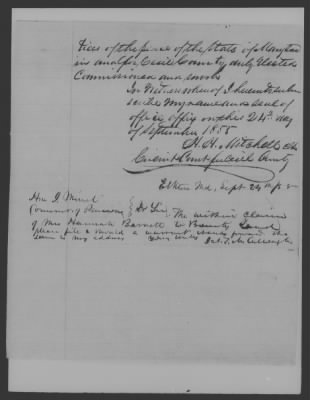 tices of the peace of the State of Maryland
in and for Cecil County duly Elected
Commissioned and sworn
In Witness whereof I hereunto sub
scribe my name and seal of
office on the 24th day
of September 1855
H. H. Mitchell Clk
Circuit Court for Cecil County
Elkton Md, Sept 24th
Hon J. Minot
Commr of Pensions } Dr Sir, The within claim
of Mrs Hannah Barnett to Bounty Land
please file & should a warrant issue forward the
same to my address